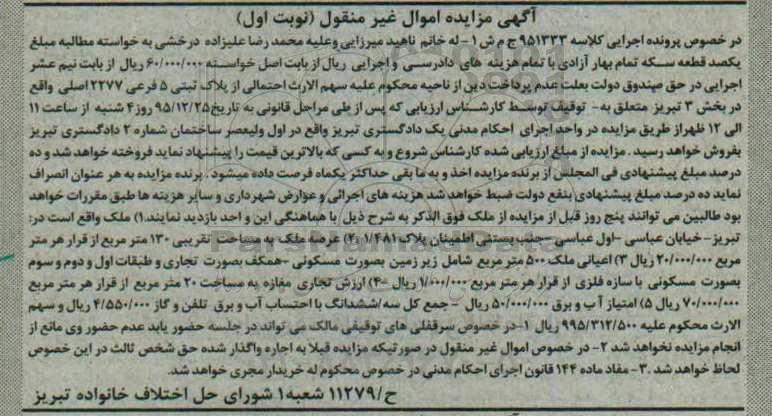 آگهی مزایده اموال غیر منقول (نوبت اول)
در خصوص پرونده اجرایی کلاسه ۹۵۱۳۳۳ ج م ش ۱- له خانم ناهید میرزایی وعلیه محمد رضا علیزاده درخشی به خواسته مطالبه مبلغ
یکصد قطعه سکه تمام بهار آزادی با تمام هزینه های دادرسی و اجرایی ریال از بابت اصل خواسته ۶۰/۰۰۰/۰۰۰ ریال از بابت نیم عشر
اجرایی در حق صندوق دولت بعلت عدم پرداخت دین از ناحیه محکوم علیه سهم الارث احتمالی از پلاک ثبتی ۵ فرعی ۲۲۷۷ اصلی واقع
در بخش ۳ تبریز متعلق به- توقیف توسط کارشناس ارزیابی که پس از طی مراحل قانونی به تاریخ ۹۵/۱۲/۲۵ روز ۴ شنبه از ساعت ۱۱
الی ۱۲ ظهر از طریق مزایده در واحد اجرای احکام مدنی یک دادگستری تبریز واقع در اول ولیعصر ساختمان شماره ۲ دادگستری تبریز
بفروش خواهد رسید . مزایده از مبلغ ارزیابی شده کارشناس شروع و به کسی که بالاترین قیمت را پیشنهاد نماید فروخته خواهد شد و ده
درصد مبلغ پیشنهادی فی المجلس از برنده مزایده اخذ و به ما بقی حداکثر یکماه فرصت داده میشود . برنده مزایده به هر عنوان انصراف
نماید ده درصد مبلغ پیشنهادی بنفع دولت ضبط خواهد شد هزینه های اجرائی و عوارض شهرداری و سایر هزینه ها طبق مقررات خواهد
بود طالبین می توانند پنج روز قبل از مزایده از ملک فوق الذکر به شرح ذیل با هماهنگی این و احد بازدید نمایند.۱) ملک واقع است در:
تبریز-خیابان عباسی -اول عباسی -جنب بستنی اطمینان پلاک ۱/۴۸۱ ۲) عرصه ملک به مساحت تقریبی ۱۳۰ متر مربع از قرار هر متر
مربع ۲۰/۰۰۰/۰۰۰ ریال ۳) اعیانی ملک ۵۰۰ متر مربع شامل زیر زمین بصورت مسکونی -همکف بصورت تجاری و طبقات اول و دوم و سوم
بصورت مسکونی با سازه فلزی از قرار هر متر مربع ۱/۰۰۰/۰۰۰ ریال -۴) ارزش تجاری مغازه به مساحت ۲۰ متر مربع از قرار هر متر مربع
۷۰/۰۰۰/۰۰۰ ریال ۵) امتیاز آ ب و برق ۵۰/۰۰۰/۰۰۰ ریال - جمع کل سه/ششدانگ با احتساب آب و برق تلفن و گاز ۴/۵۵۰/۰۰۰ ریال و سهم
الارث محکوم علیه ۹۹۵/۳۱۲/۵۰۰ ریال ۱-در خصوص سرقفلی های توقیفی مالک می تواند در جلسه حضور یابد عدم حضور وی مانع از
انجام مزایده نخواهد شد ۲- در خصوص اموال غیر منقول در صورتیکه مزایده قبلا به اجاره واگذار شده حق شخص ثالث در این خصوص
لحاظ خواهد شد .۳- مفاد ماده ۱۴۴ قانون اجرای احکام مدنی در خصوص محکوم له خریدار مجری خواهد شد.
ح/۱۱۲۷۹ شعبه۱ شورای حل اختلاف خانواده تبریز